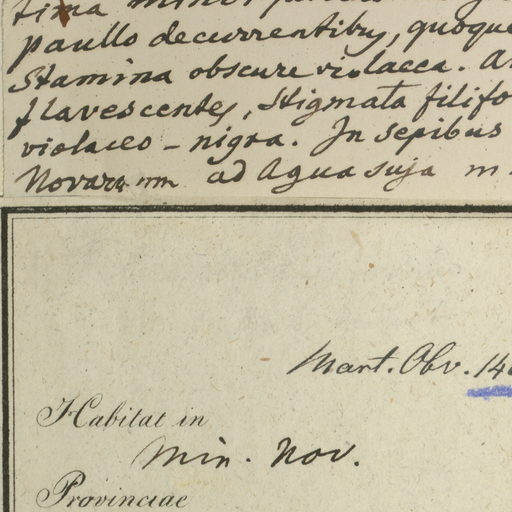 tima minor
paullo decurrentibus, quoque
Stamina obscure violacea. An
flavescentes, Stigmata filifo
violaceo - nigra. In sepibus
Novarum ad Agua suja m
Mart. Obv. 14
Habitat in
Min. Nov.
Provinciae